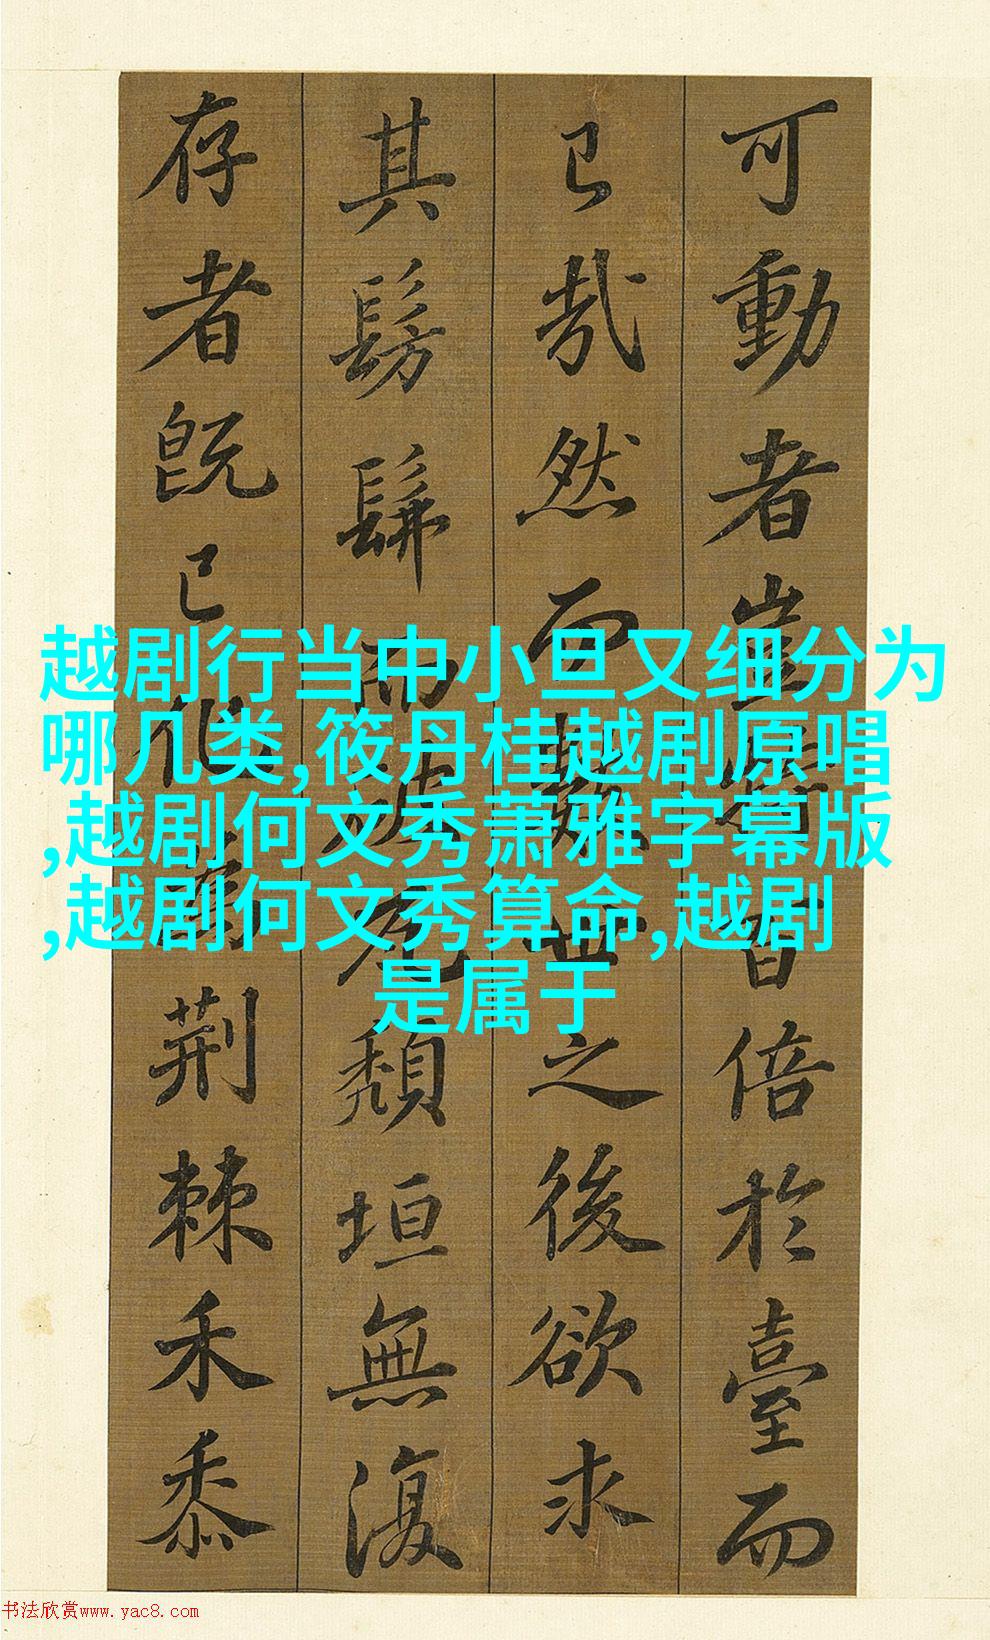 可動者豈特百倍於臺而
已哉然而數世之後欲求
其髣髴而破瓦頹垣無復
存者既已化為荆棘禾黍
越剧行当中小旦又细分为
哪几类,筱丹桂越剧原唱
,越剧何文秀萧雅字幕版
,越剧何文秀算命,越剧
是属于
书法欣赏www.yac8.com